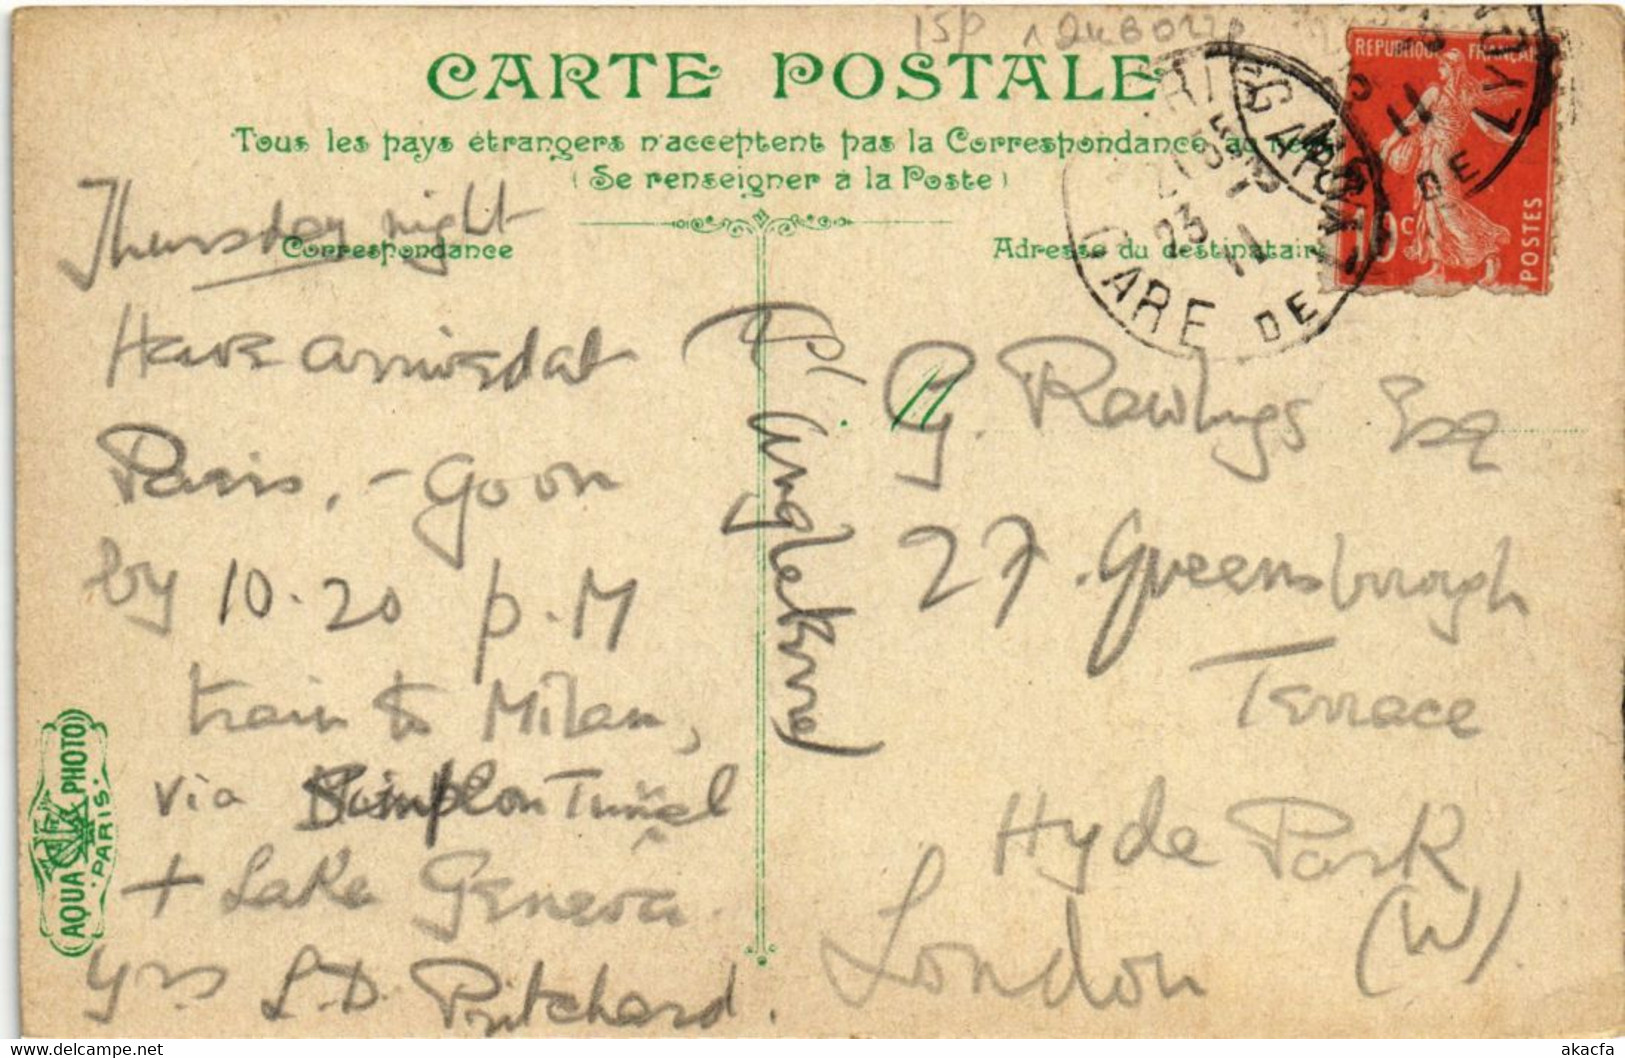 CARTE POSTALE
Tous les pays étrangers n'acceptent pas la Correspondance au
(Se renseigner à la Poste)
Correspondance
Adresse du destinataire
REPUBLIQUE FRANÇAISE
10c
POSTES
GARE DE LYON
PARIS
GARE DE
23
11
Thursday night
Have arrived at
Paris, - Go on
by 10.20 p.M
train to Milan,
via Simplon Tunnel
+ Lake Geneva
yrs L.D. Pritchard.
Angleterre
G. Rawlings Esq
27. Greensborough
Terrace
Hyde Park
London (W).
AQUA PHOTO
PARIS
akacfa